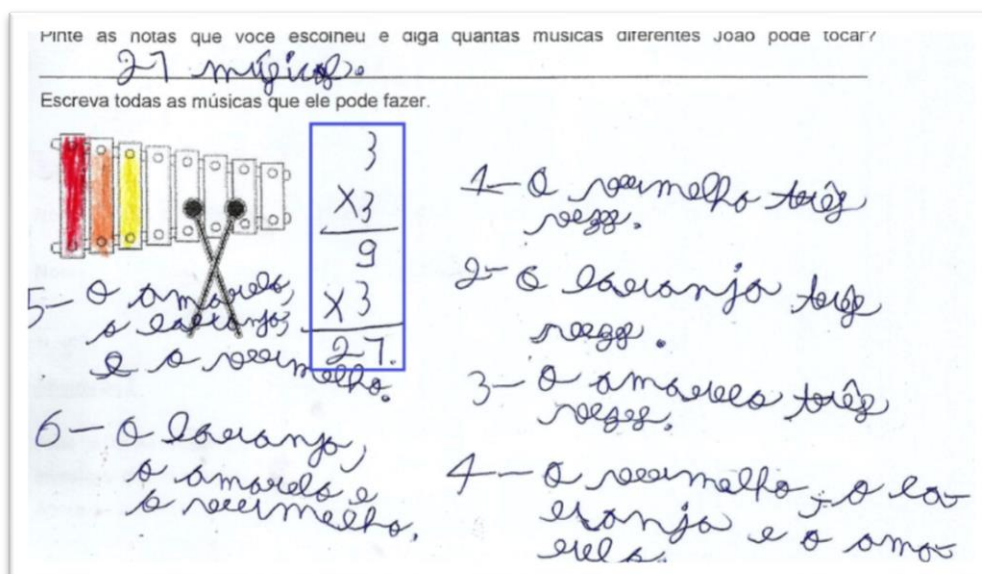 Pinte as notas que você escolheu e diga quantas músicas diferentes João pode tocar?
27 músicas.
Escreva todas as músicas que ele pode fazer.
3
x3
9
x3
27.
1- O vermelho três
vezes.
2- O laranja três
vezes.
3- O amarelo três
vezes.
4- O vermelho, o la-
ranja e o ama
relo.
5- O amarelo,
o laranja
e o vermelho.
6- O laranja,
o amarelo e
o vermelho.